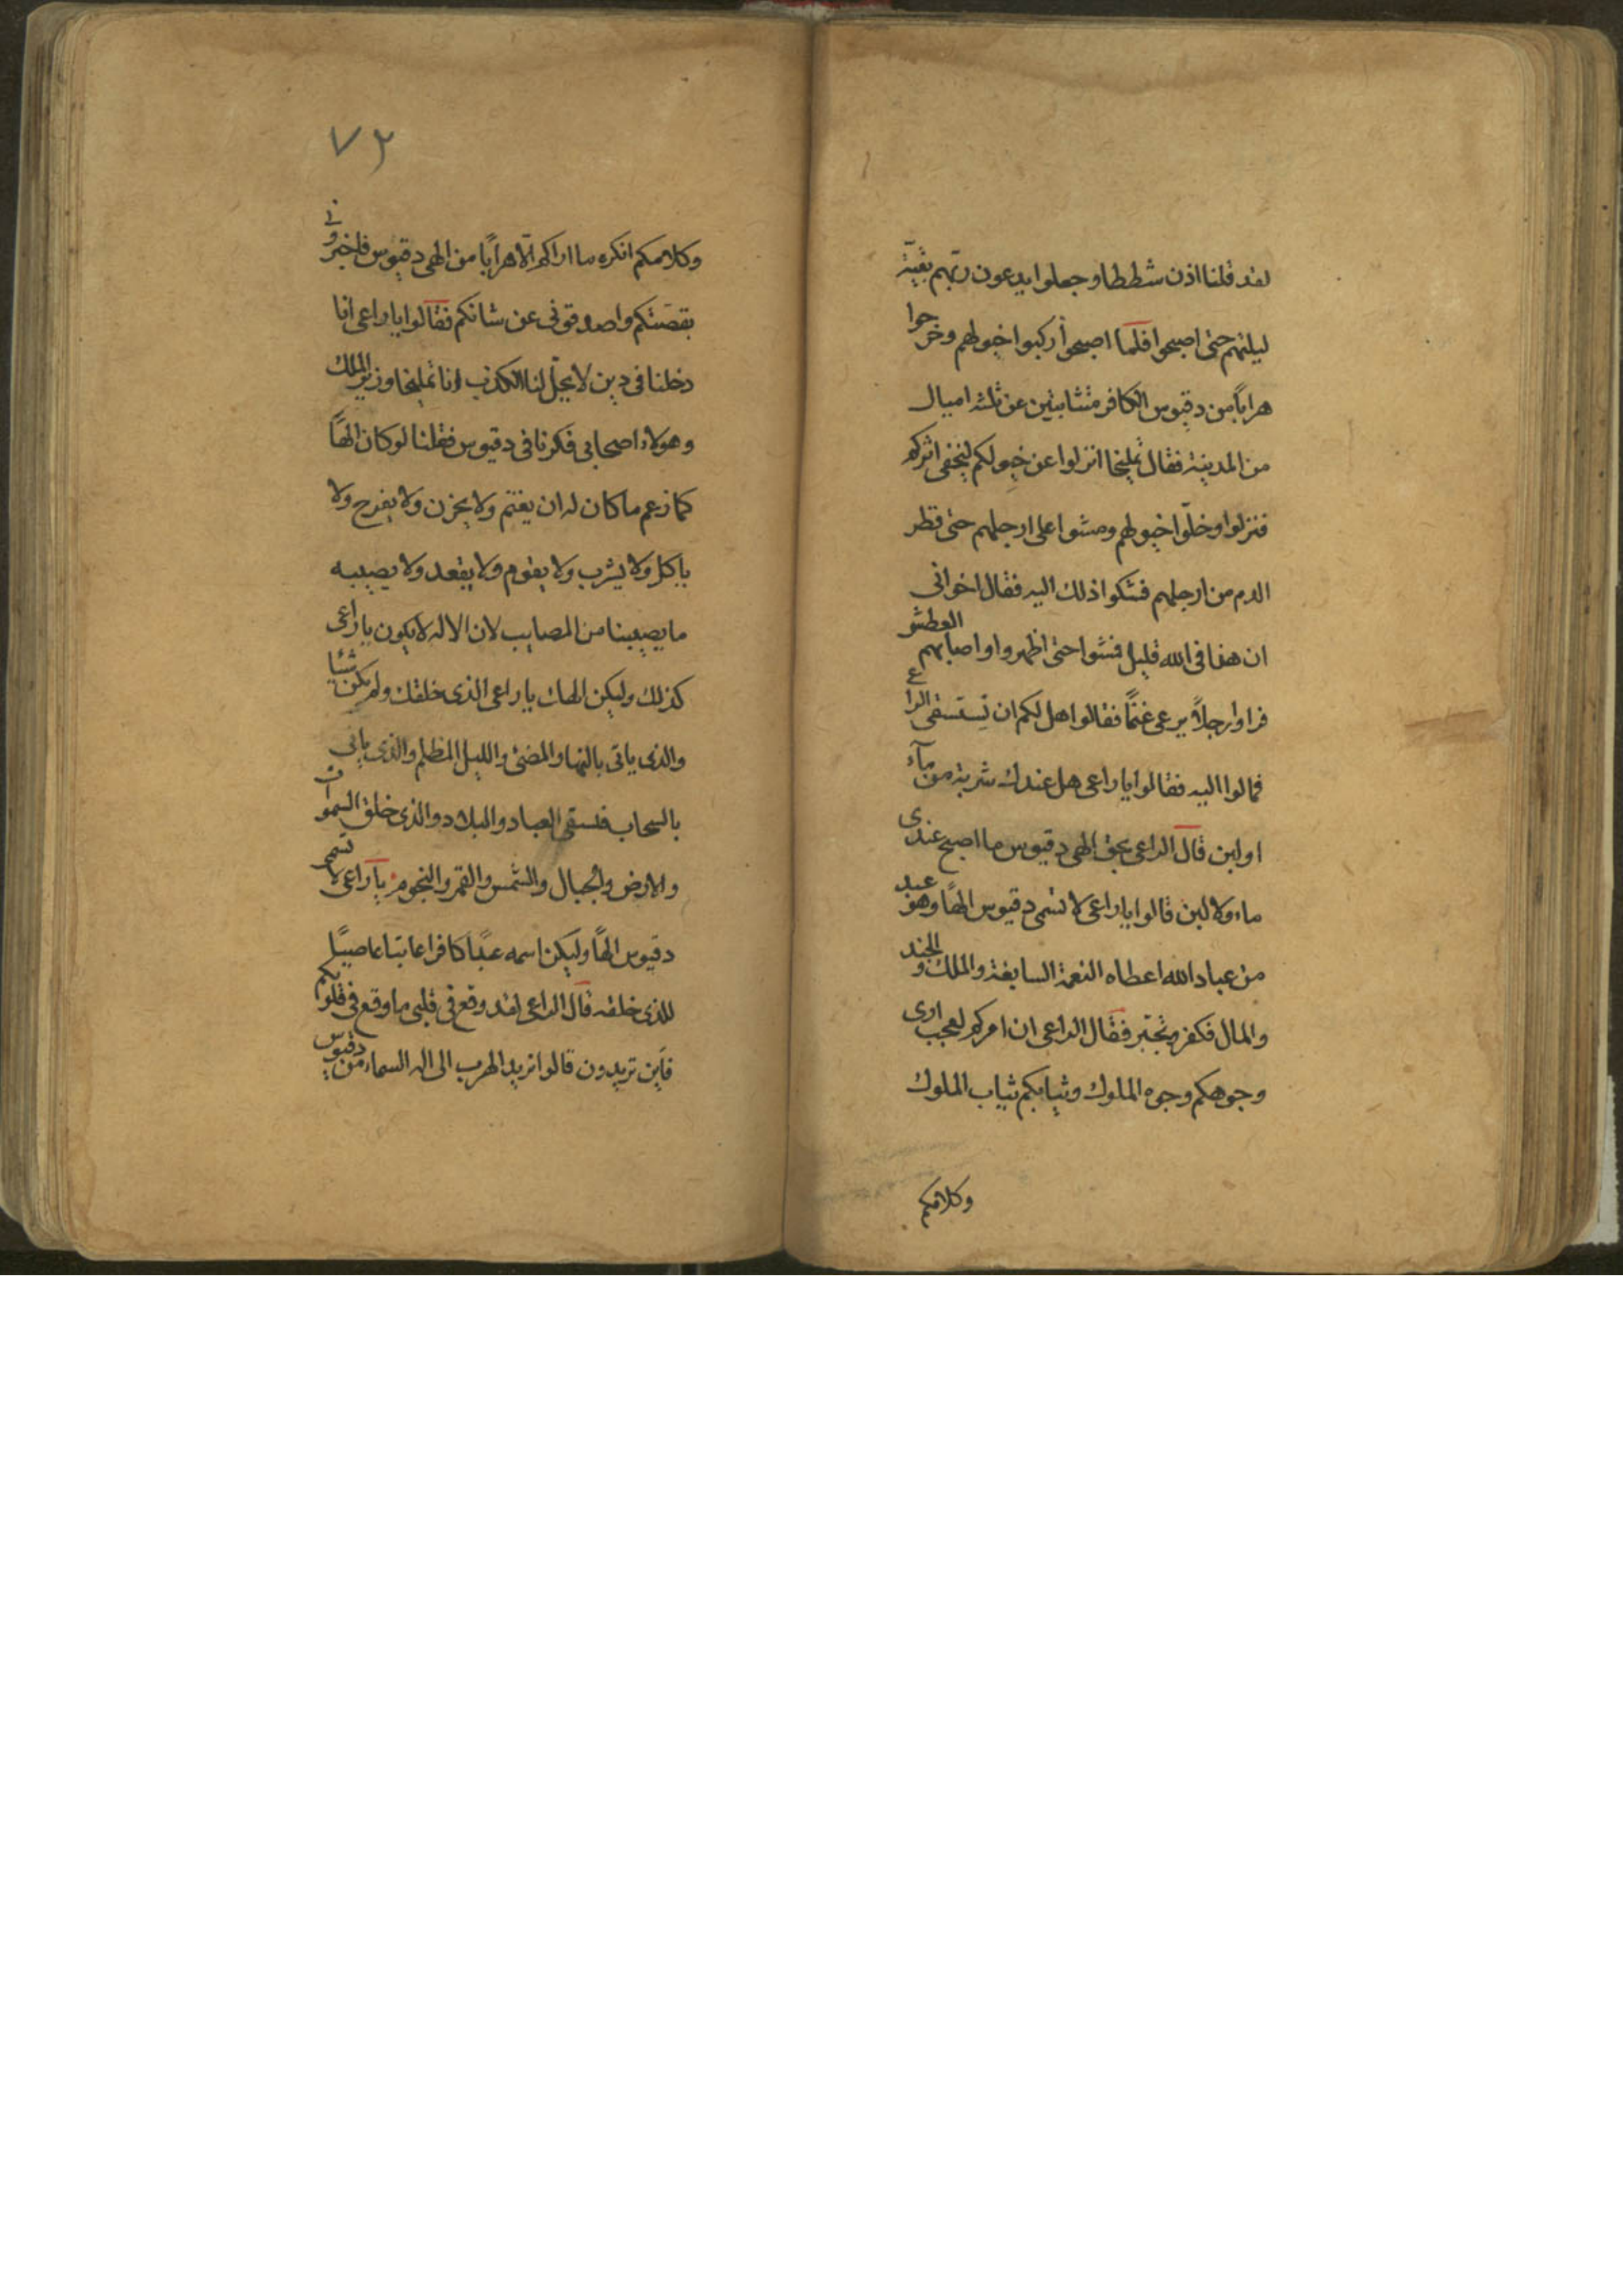 لقد قلنا اذن شططا وجعلوا يدعون ربهم بقية
ليلتهم حتى اصبحوا فلما اصبحوا ركبوا خيولهم وخرجوا
هرابا من دقيوس الكافر متشابنين عن ثلثه اميال
من المدينة فقال تمليخا انزلوا عن خيولكم ليخفى اثركم
فنزلوا وخلّوا خيولهم ومشوا على ارجلهم حتى قطر
الدم من ارجلهم فشكوا ذلك اليه فقال اخوانى
ان هذا فى الله قليل فمشوا حتى اظهروا واصابهم العطش و
فراوا رجلاً يرعى غنمًا فقالوا هل لكم ان نستسقى الراع
فمالوا اليه فقالوا يا راعى هل عندك شربة من مآء
او لبن قال الراعى بحق الهى دقيوس ما اصبح عندى
ماء ولا لبن قالوا يا راعى لا تسمى دقيوس الهًا وهو عبد
من عباد الله اعطاه النعمة السابغة والملك والجند
والمال فكفر وتجبّر فقال الراعى ان امركم لعجب ارى
وجوهكم وجوه الملوك وثيابكم ثياب الملوك
وكلامكم
٧٢
وكلامكم انكره ما اراكم الّا هرابًا من الهى دقيوس فاخبرونى
بقصتكم واصدقونى عن شانكم فقالوا يا راعى انا
دخلنا فى دين لا يحلّ لنا الكذب انا تمليخا وزير الملك
وهولاء اصحابى فكرنا فى دقيوس فقلنا لو كان الهًا
كما زعم ما كان له ان يغتم ولا يحزن ولا يفرح ولا
ياكل ولا يشرب ولا يقوم ولا يقعد ولا يصيبه
ما يصيبنا من المصايب لان الاله لا يكون يا راعى
كذلك وليكن الهك يا راعى الذى خلقك ولم يكن شئيا
والذى ياتى بالنهار المضئ والليل المظلم والذى ياتى
بالسحاب فسقى العباد والبلاد والذى خلق السموات
والارض والجبال والشمس والقمر والنجوم يا راعى لا تسم
دقيوس الهًا وليكن اسمه عبدًا كافرا عاتيا عاصيًا
للذى خلقه قال الراعى لقد وقع فى قلبى ما وقع فى قلوبكم
فاين تريدون قالوا نريد الهرب الى اله السماء من دقيوس